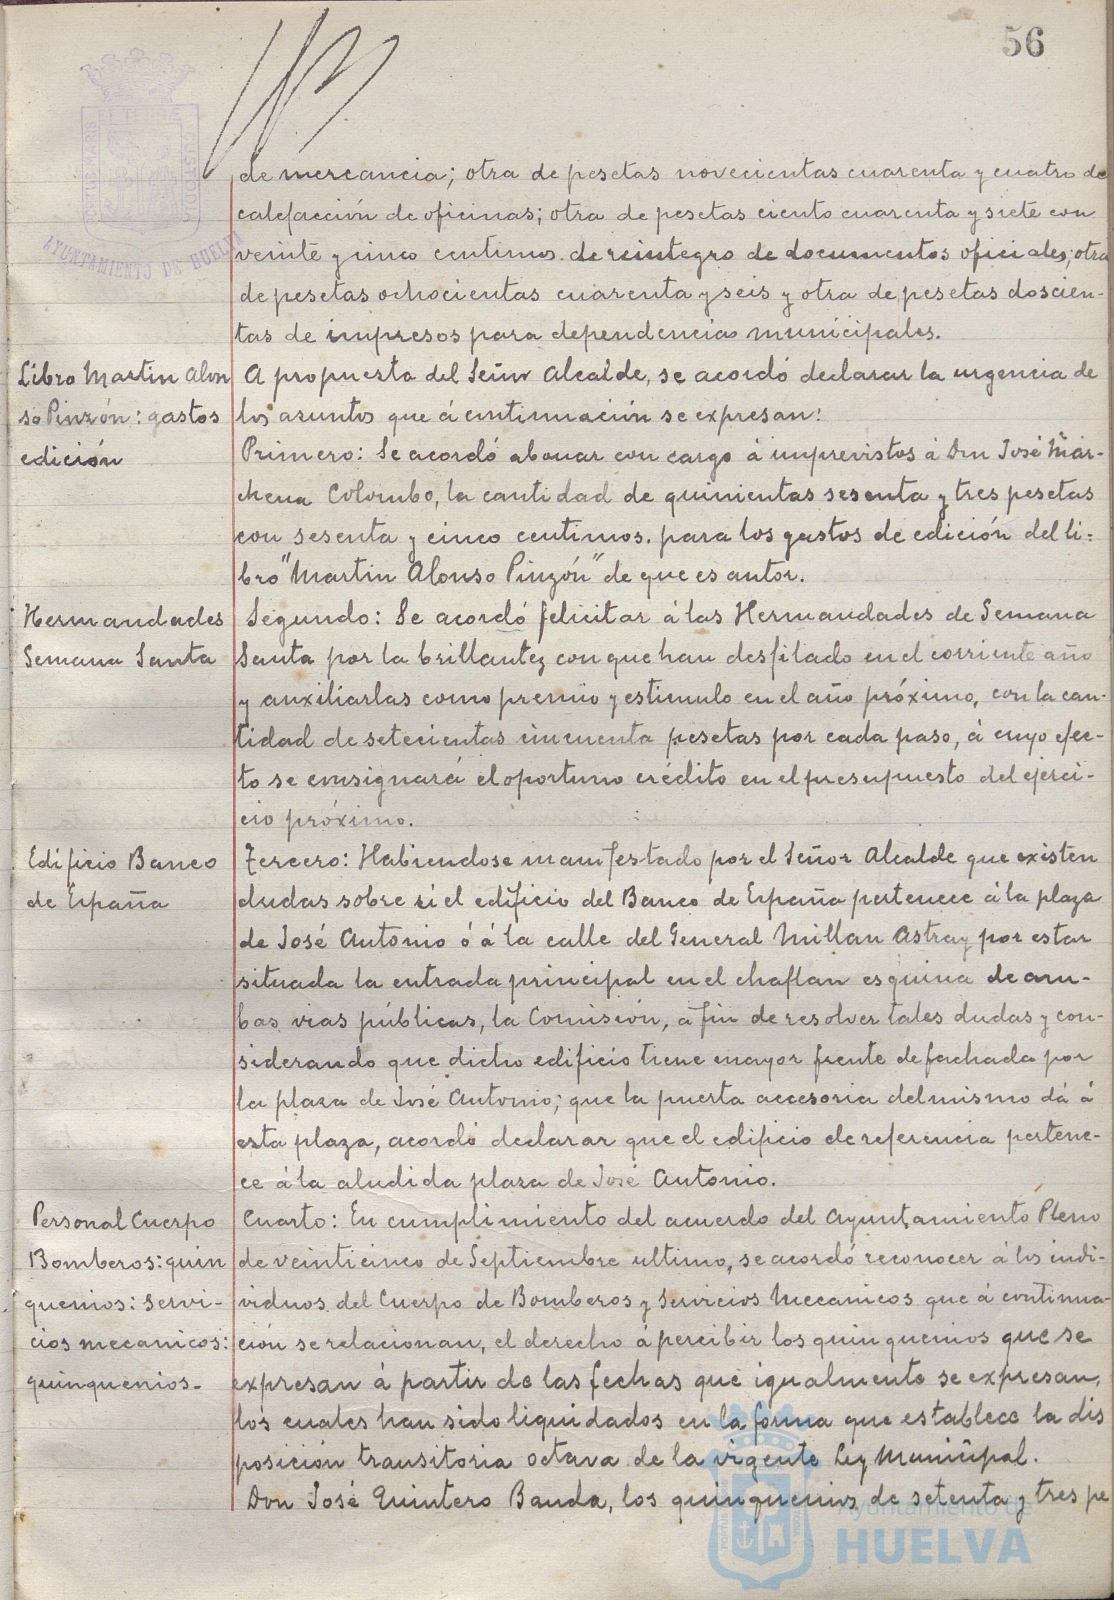 56
AYUNTAMIENTO DE HUELVA
de mercancia; otra de pesetas novecientas cuarenta y cuatro de
calefacción de oficinas; otra de pesetas ciento cuarenta y siete con
veinte y cinco centimos de reintegro de documentos oficiales; otra
de pesetas ochocientas cuarenta y seis y otra de pesetas doscien-
tas de impresos para dependencias municipales.
Libro Martin Alon
so Pinzón: gastos
edición
A propuesta del Señor Alcalde, se acordó declarar la urgencia de
los asuntos que á continuación se expresan:
Primero: Se acordó abonar con cargo á imprevistos á Don José Mar-
chena Colombo, la cantidad de quinientas sesenta y tres pesetas
con sesenta y cinco centimos. para los gastos de edición del li-
bro "Martin Alonso Pinzón" de que es autor.
Hermandades
Semana Santa
Segundo: Se acordó felicitar á las Hermandades de Semana
Santa por la brillantez con que han desfilado en el corriente año
y auxiliarlas como premio y estimulo en el año próximo, con la can-
tidad de setecientas cincuenta pesetas por cada paso, á cuyo efec-
to se consignará el oportuno crédito en el presupuesto del ejerci-
cio próximo.
Edificio Banco
de España
Tercero: Habiendose manifestado por el Señor Alcalde que existen
dudas sobre si el edificio del Banco de España pertenece á la plaza
de José Antonio ó á la calle del General Millan Astray por estar
situada la entrada principal en el chaflan esquina de am-
bas vias públicas, la Comisión, a fin de resolver tales dudas y con-
siderando que dicho edificio tiene mayor frente de fachada por
la plaza de José Antonio; que la puerta accesoria del mismo dá á
esta plaza, acordó declarar que el edificio de referencia pertene-
ce á la aludida plaza de José Antonio.
Personal Cuerpo
Bomberos: quin
quenios: servi-
cios mecanicos:
quinquenios-
Cuarto: En cumplimiento del acuerdo del Ayuntamiento Pleno
de veinticinco de Septiembre ultimo, se acordó reconocer á los indi-
viduos del Cuerpo de Bomberos y Servicios Mecanicos que á continua-
ción se relacionan, el derecho á percibir los quinquenios que se
expresan á partir de las fechas que igualmente se expresan,
los cuales han sido liquidados en la forma que establece la dis
posición transitoria octava de la vigente Ley Municipal.
Don José Quintero Banda, los quinquenios de setenta y tres pe
Ayuntamiento de
HUELVA